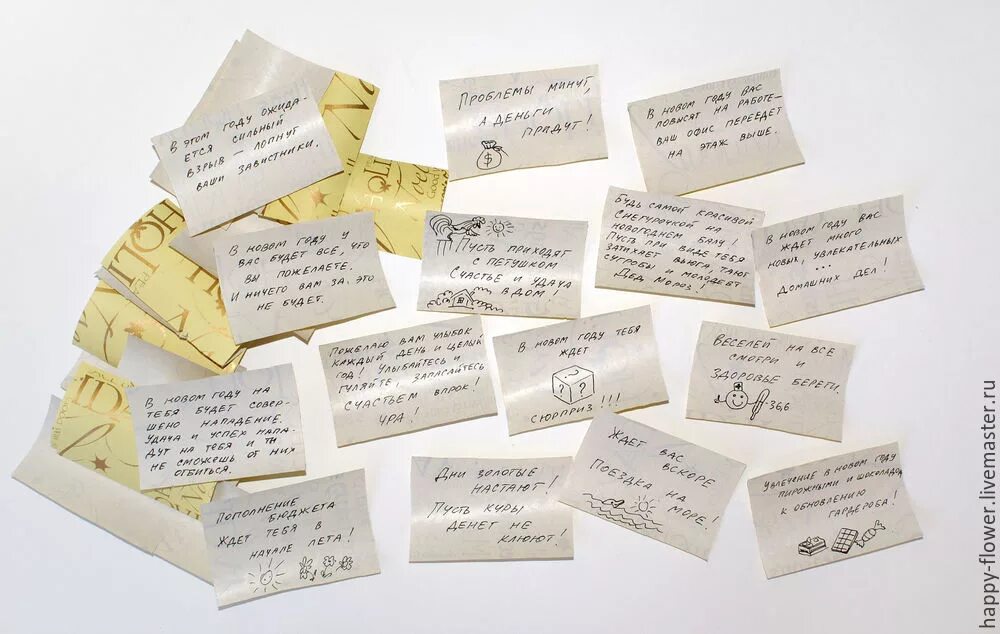 В ЭТОМ ГОДУ ОЖИДА-
ЕТСЯ СИЛЬНЫЙ
ВЗРЫВ — ЛОПНУТ
ВАШИ ЗАВИСТНИКИ.
ПРОБЛЕМЫ МИНУТ,
А ДЕНЬГИ
ПРИДУТ!
$
В НОВОМ ГОДУ ВАС
ПОВЫСЯТ НА РАБОТЕ —
ВАШ ОФИС ПЕРЕЕДЕТ
НА ЭТАЖ ВЫШЕ.
В НОВОМ ГОДУ У
ВАС БУДЕТ ВСЕ, ЧТО
ВЫ ПОЖЕЛАЕТЕ.
И НИЧЕГО ВАМ ЗА ЭТО
НЕ БУДЕТ.
ПУСТЬ ПРИХОДЯТ
С ПЕТУШКОМ
СЧАСТЬЕ И УДАЧА
В ДОМ!
БУДЬ САМОЙ КРАСИВОЙ
СНЕГУРОЧКОЙ НА
НОВОГОДНЕМ БАЛУ!
ПУСТЬ ПРИ ВИДЕ ТЕБЯ
ЗАТИХАЕТ ВЬЮГА, ТАЮТ
СУГРОБЫ И МОЛОДЕЕТ
ДЕД МОРОЗ!
В НОВОМ ГОДУ ВАС
ЖДЕТ МНОГО
НОВЫХ, УВЛЕКАТЕЛЬНЫХ
...
ДОМАШНИХ ДЕЛ!
ПОЖЕЛАЮ ВАМ УЛЫБОК
КАЖДЫЙ ДЕНЬ И ЦЕЛЫЙ
ГОД! УЛЫБАЙТЕСЬ И
ГУЛЯЙТЕ, ЗАПАСАЙТЕСЬ
СЧАСТЬЕМ ВПРОК!
УРА!
В НОВОМ ГОДУ ТЕБЯ
ЖДЕТ
? ? ?
СЮРПРИЗ!!!
ВЕСЕЛЕЙ НА ВСЕ
СМОТРИ И
ЗДОРОВЬЕ БЕРЕГИ.
36,6
В НОВОМ ГОДУ НА
ТЕБЯ БУДЕТ СОВЕР-
ШЕНО НАПАДЕНИЕ.
УДАЧА И УСПЕХ НАПА-
ДУТ НА ТЕБЯ И ТЫ
НЕ СМОЖЕШЬ ОТ НИХ
ОТБИТЬСЯ.
ПОПОЛНЕНИЕ
БЮДЖЕТА
ЖДЕТ ТЕБЯ В
НАЧАЛЕ ЛЕТА!
ДНИ ЗОЛОТЫЕ
НАСТАЮТ!
ПУСТЬ КУРЫ
ДЕНЕГ НЕ
КЛЮЮТ!
ЖДЕТ ВАС
ВСКОРЕ
ПОЕЗДКА НА
МОРЕ!
УВЛЕЧЕНИЕ В НОВОМ ГОДУ
ПИРОЖНЫМИ И ШОКОЛАДОМ
К ОБНОВЛЕНИЮ
ГАРДЕРОБА!
happy-flower.livemaster.ru